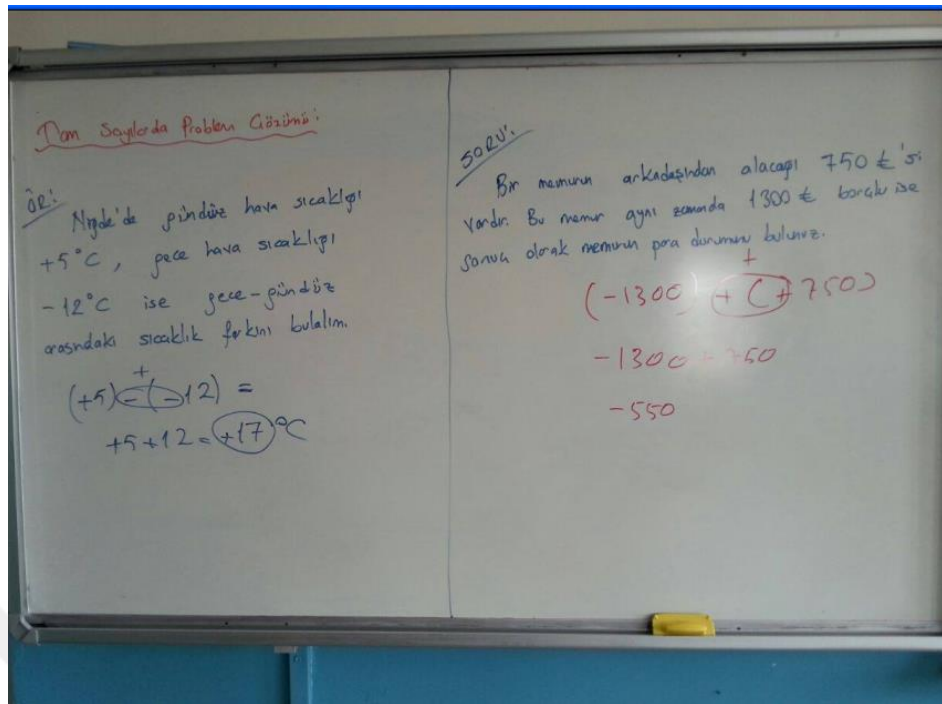 Tam Sayılarda Problem Çözümü:
ÖR:
Niğde'de gündüz hava sıcaklığı
+5°C, gece hava sıcaklığı
-12°C ise gece-gündüz
arasındaki sıcaklık farkını bulalım.
+
(+5)-(-12) =
+5+12=+17°C
SORU:
Bir memurun arkadaşından alacağı 750 ₺'si
vardır. Bu memur aynı zamanda 1300 ₺ borçlu ise
sonuç olarak memurun para durumunu bulunuz.
+
(-1300) + (+750)
-1300+750
-550